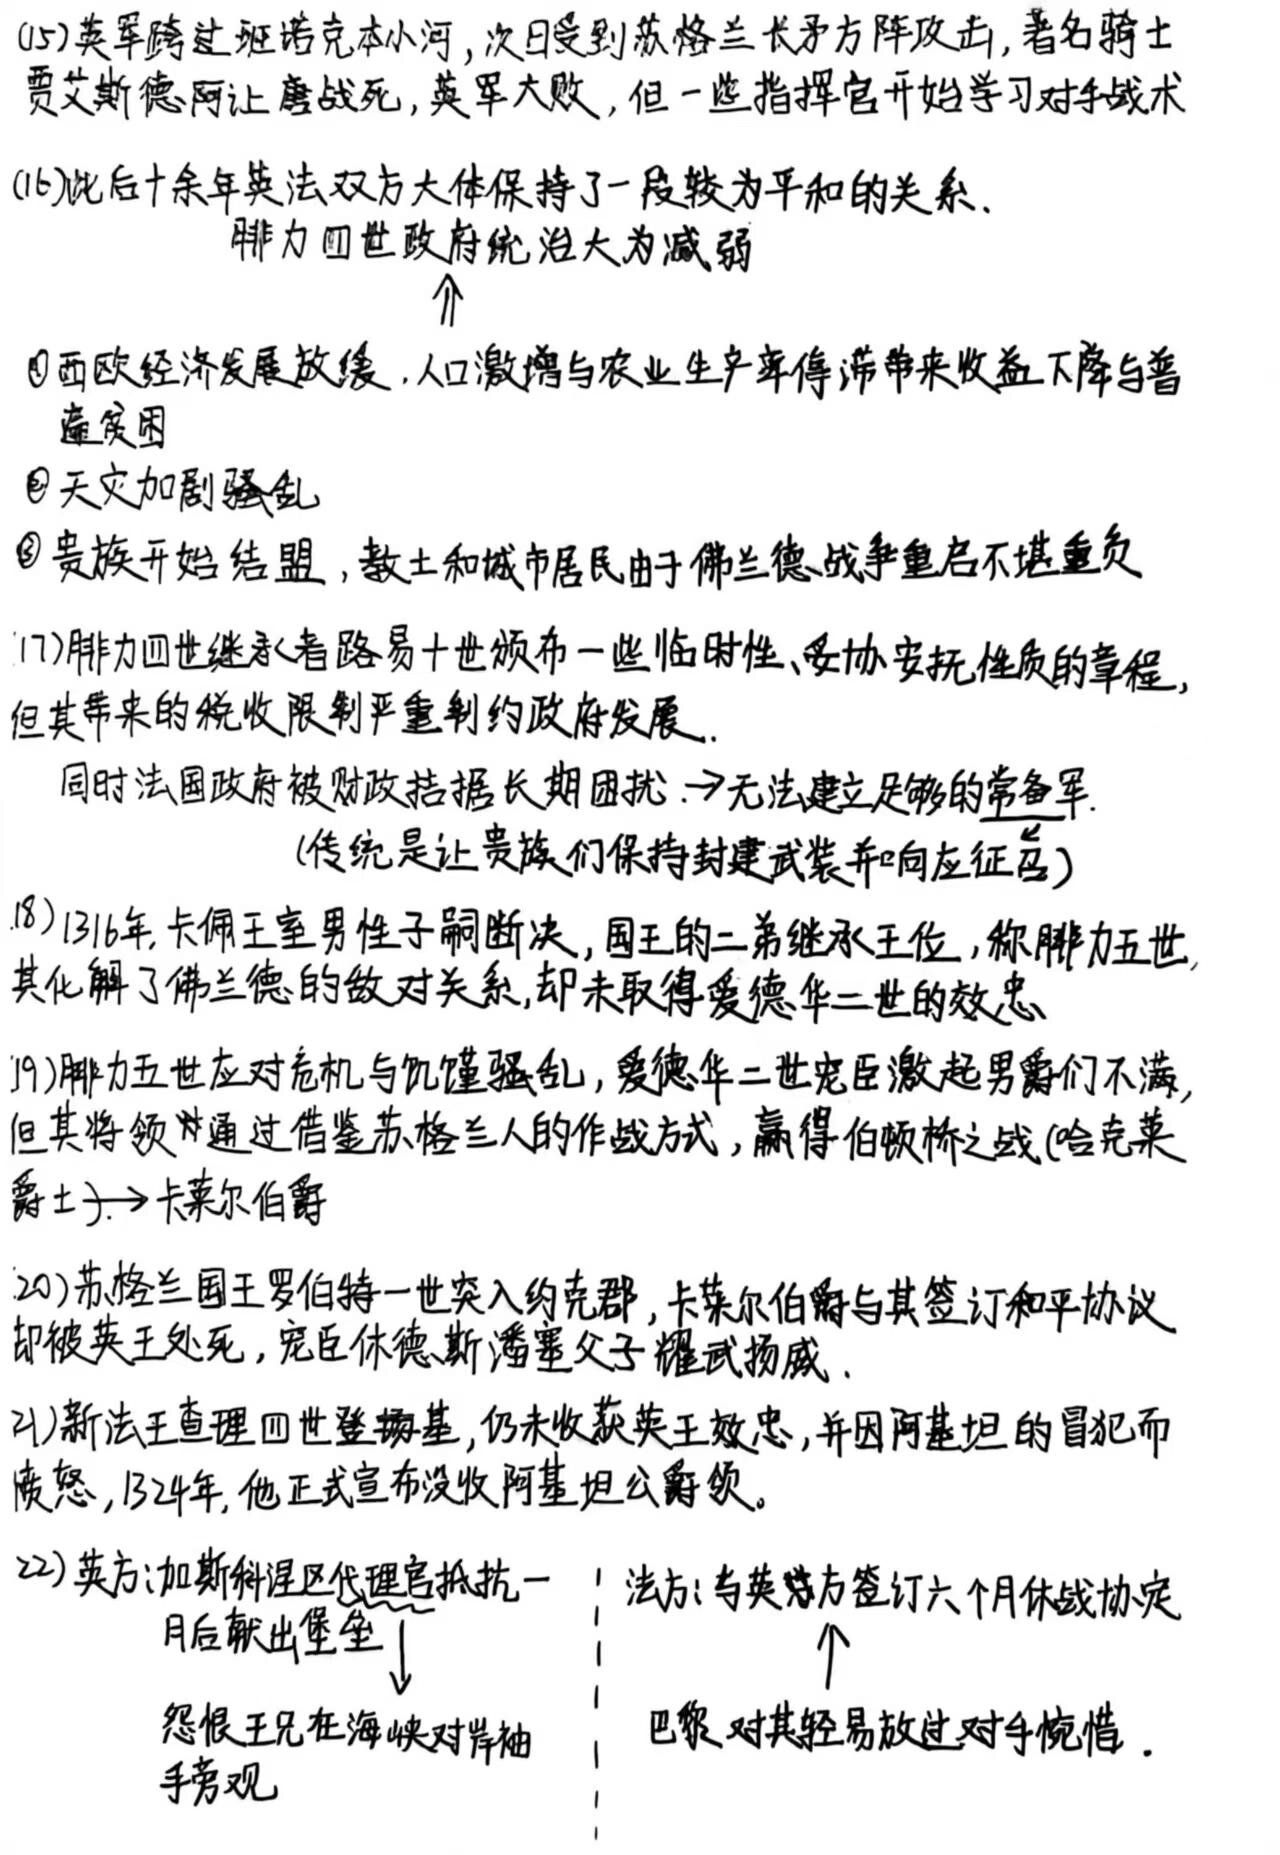 (15)英军跨过班诺克本小河,次日受到苏格兰长矛方阵攻击,著名骑士
贾艾斯德阿让唐战死,英军大败,但一些指挥官开始学习对手战术
(16)此后十余年英法双方大体保持了一段较为平和的关系.
腓力四世政府统治大为减弱
⇑
①西欧经济发展放缓.人口激增与农业生产率停滞带来收益下降与普
遍贫困
②天灾加剧骚乱
③贵族开始结盟,教士和城市居民由于佛兰德战争重启不堪重负
17)腓力四世继承者路易十世颁布一些临时性、妥协安抚性质的章程,
但其带来的税收限制严重制约政府发展.
同时法国政府被财政拮据长期困扰.→无法建立足够的常备军.
(传统是让贵族们保持封建武装并响应征召)
18)1316年,卡佩王室男性子嗣断决,国王的二弟继承王位,称腓力五世,
其化解了佛兰德的敌对关系,却未取得爱德华二世的效忠、
19)腓力五世应对危机与饥馑骚乱,爱德华二世宠臣激起男爵们不满,
但其将领通过借鉴苏格兰人的作战方式,赢得伯顿桥之战(哈克莱
爵士).→卡莱尔伯爵
20)苏格兰国王罗伯特一世突入约克郡,卡莱尔伯爵与其签订和平协议
却被英王处死,宠臣休德斯潘塞父子耀武扬威.
21)新法王查理四世登基,仍未收获英王效忠,并因阿基坦的冒犯而
愤怒,1324年,他正式宣布没收阿基坦公爵领。
22)英方:加斯科涅区代理官抵抗一
月后献出堡垒
↓
怨恨王兄在海峡对岸袖
手旁观
法方:与英方签订六个月休战协定
↑
巴黎对其轻易放过对手惋惜.